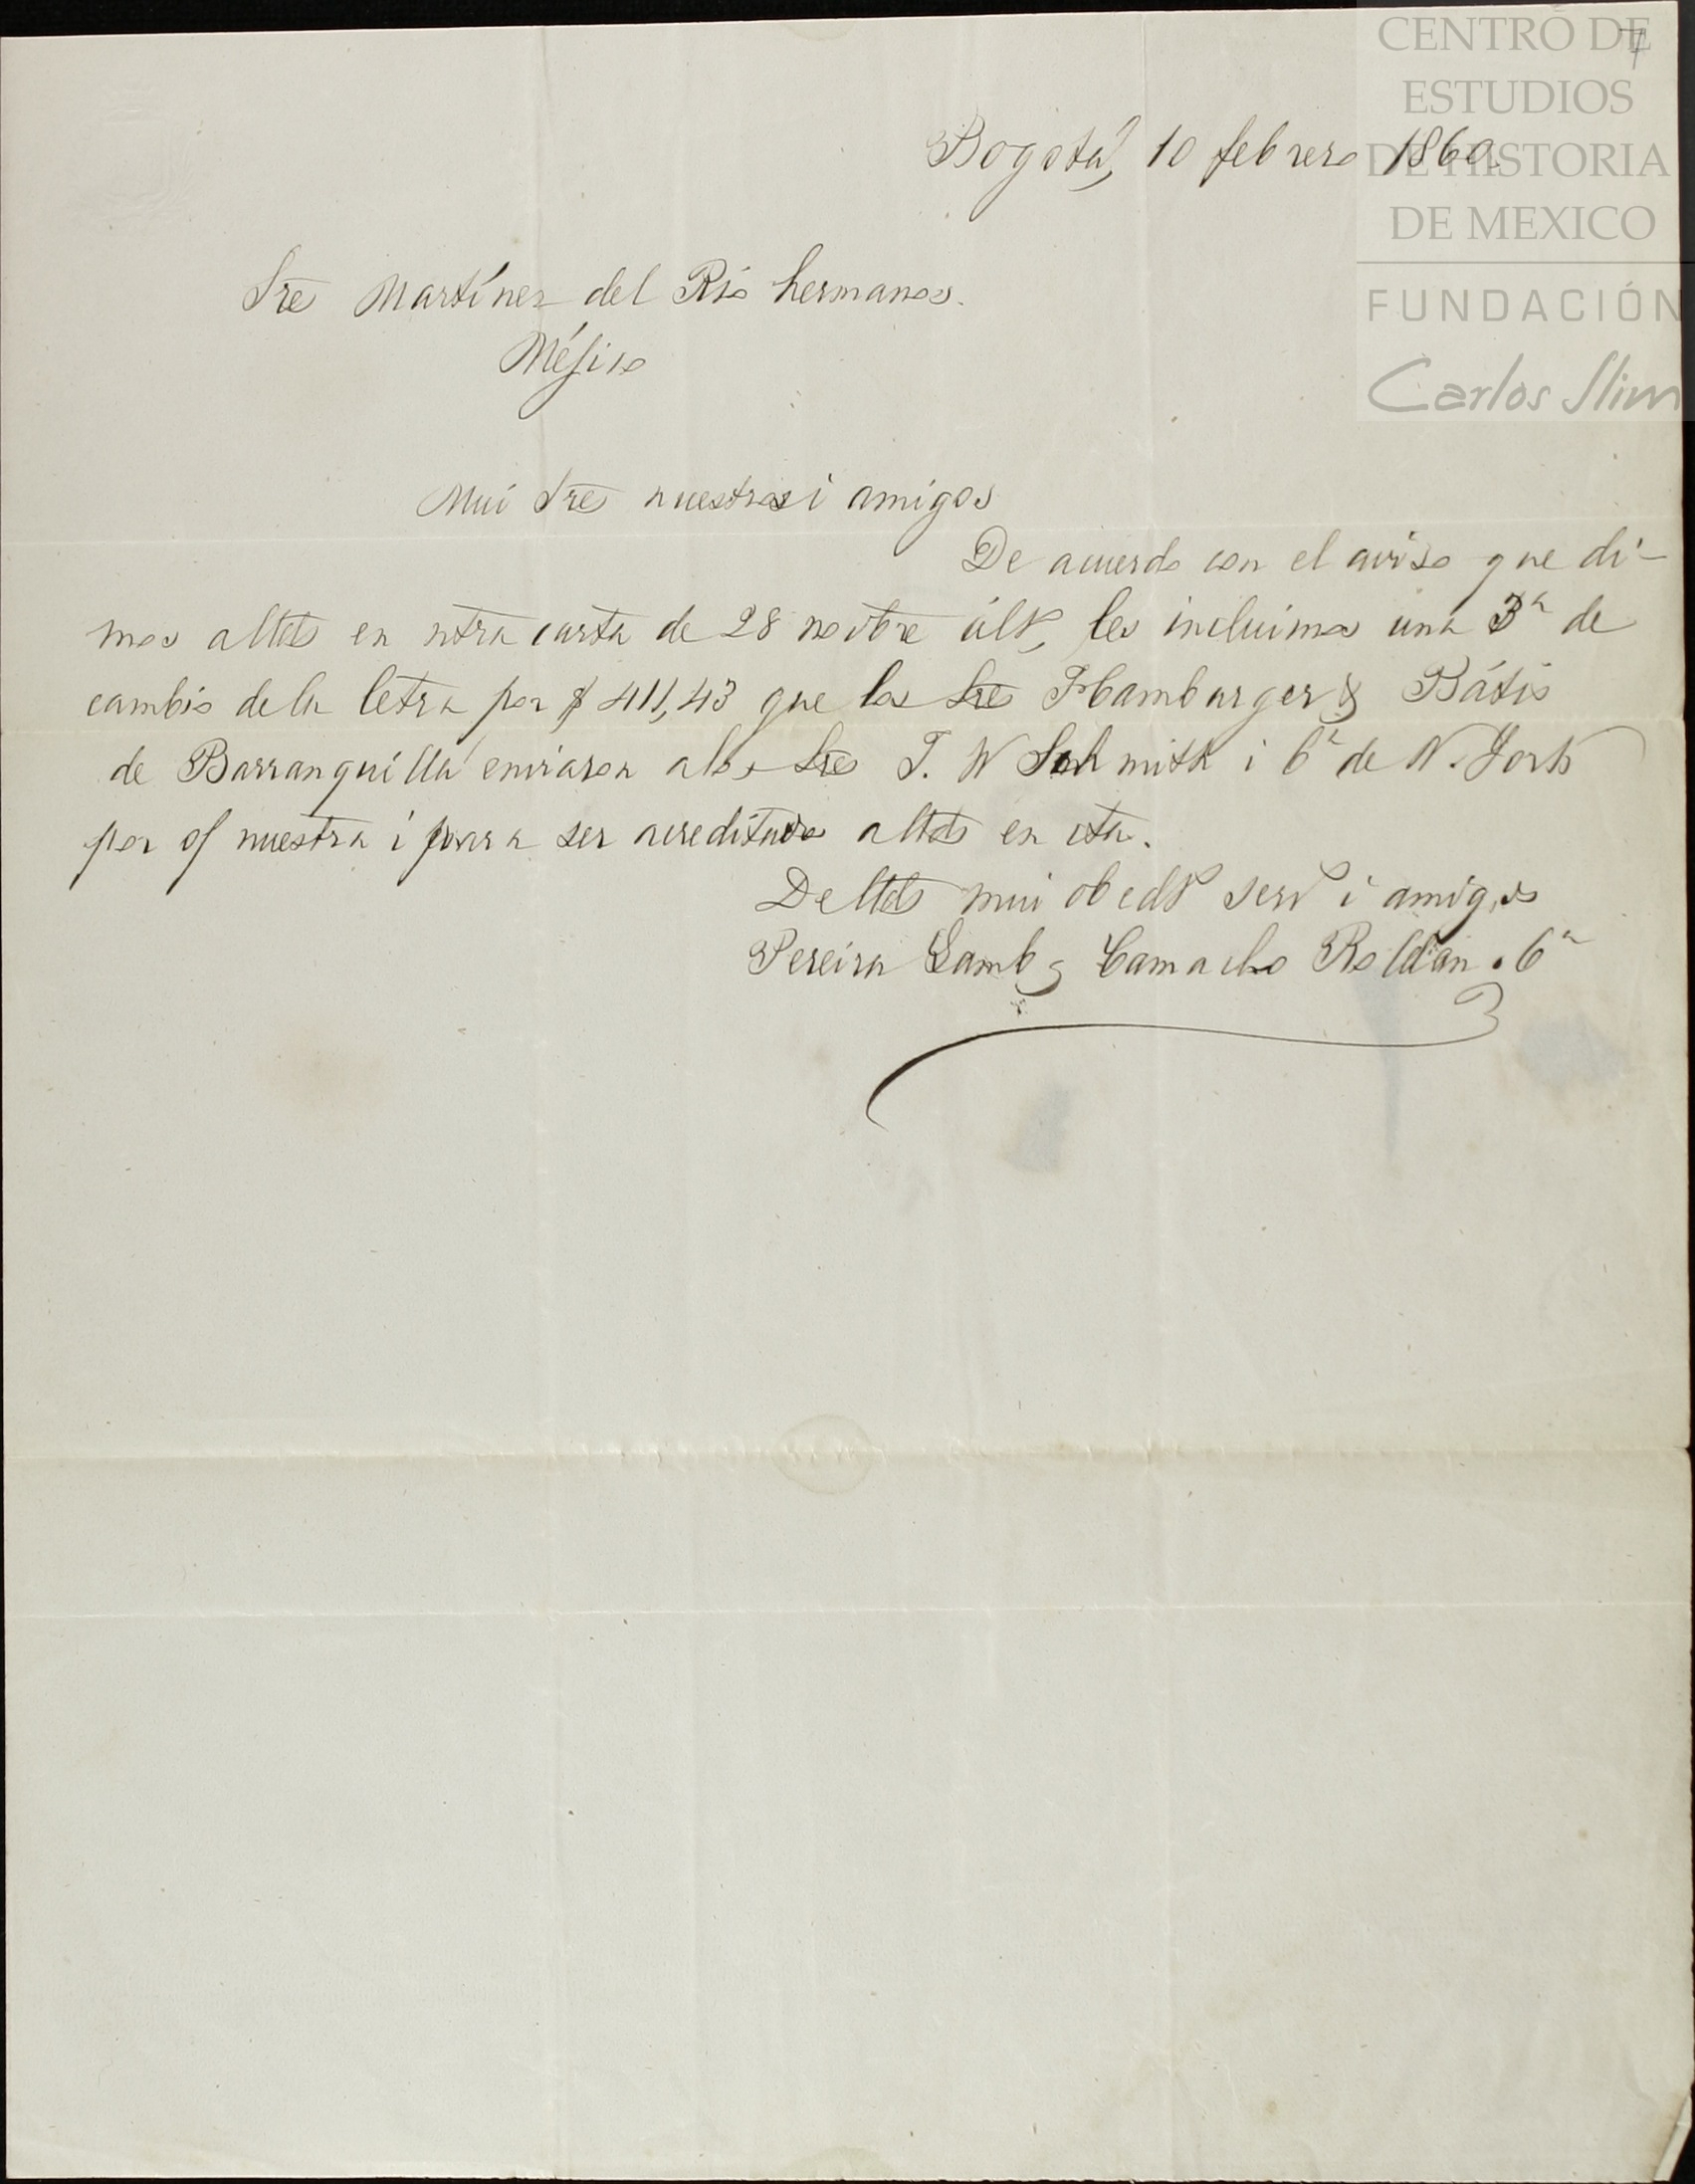 CENTRO DE
ESTUDIOS
DE HISTORIA
DE MEXICO
FUNDACIÓN
Carlos Slim
7
Bogotá, 10 febrero 1860.
Sres Martínez del Río hermanos.
Méjico
Mui Sres nuestros i amigos
De acuerdo con el aviso que di-
mos a Uds en ntra carta de 28 novbre últo, les incluimos una 3a de
cambio de la letra por $ 411,43 que los Sres Hamburger & Bátis
de Barranquilla enviaron a los Sres T. W Schmith i Ca de N. York
por of nuestra i para ser acreditados a Uds en cta.
De Uds mui obedtes servs i amigos
Pereira Gamba Camacho Roldan . Ca